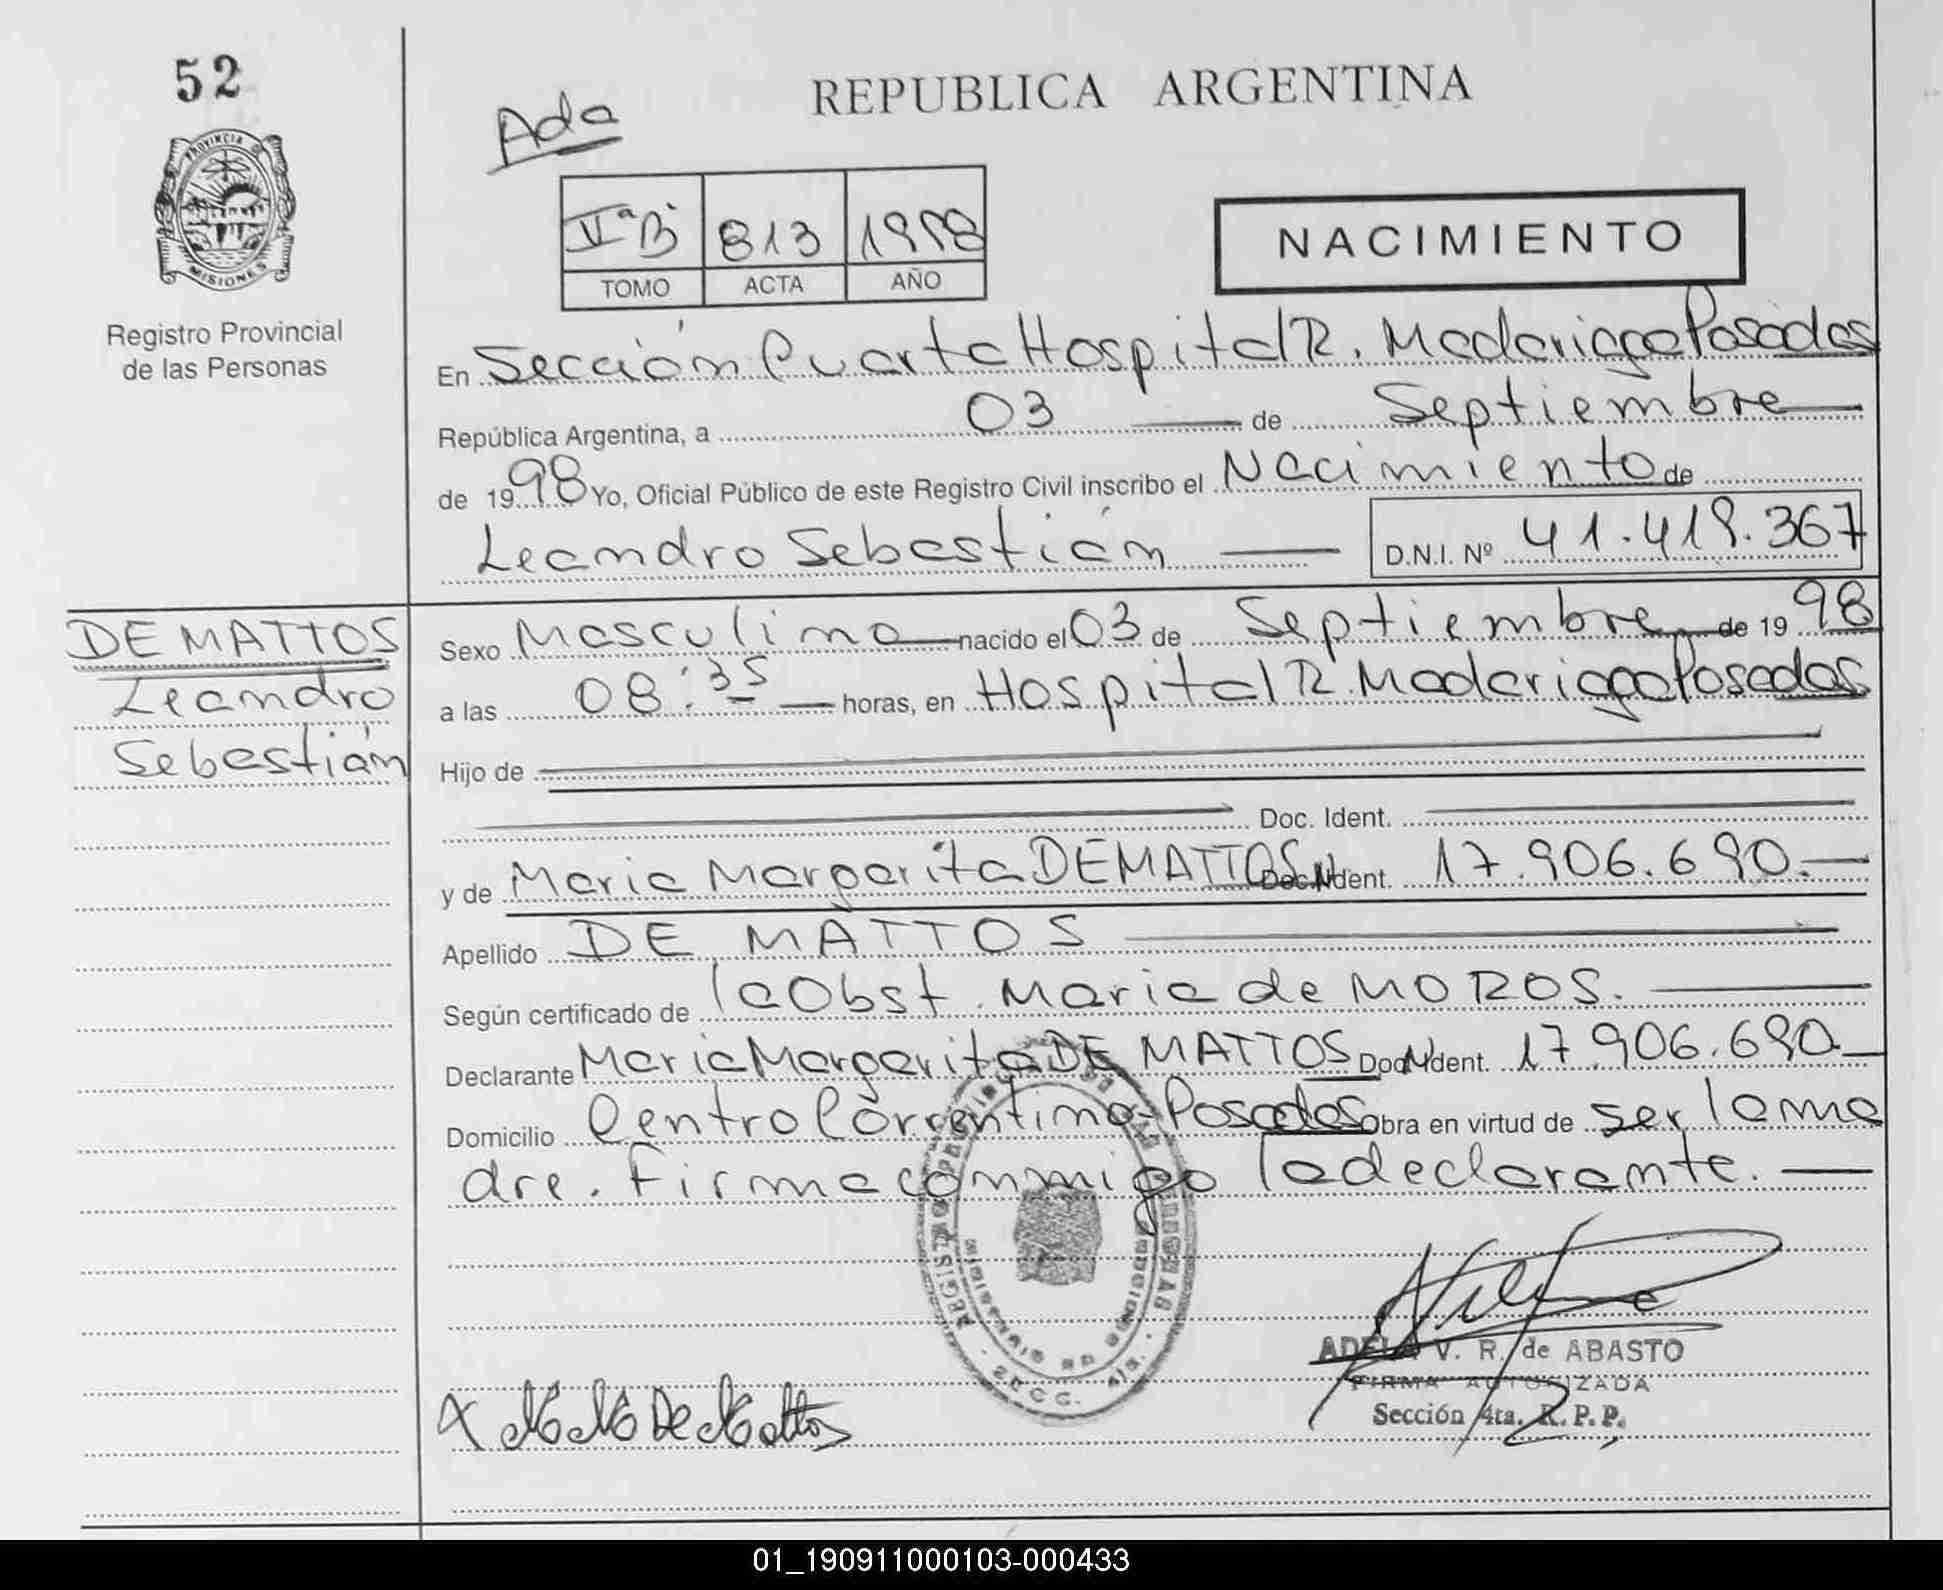 52
Ada
REPUBLICA ARGENTINA
PROVINCIA DE
MISIONES
Registro Provincial
de las Personas
IIªB 813 1998
TOMO ACTA AÑO
NACIMIENTO
En Sección Cuarta Hospital R. Madariaga Posadas
República Argentina, a 03 de Septiembre
de 1998 Yo, Oficial Público de este Registro Civil inscribo el Nacimiento de
Leandro Sebastián D.N.I. Nº 41.419.367
DE MATTOS
Leandro
Sebastián
Sexo Masculino nacido el 03 de Septiembre de 1998
a las 08:35 horas, en Hospital R. Madariaga Posadas
Hijo de
Doc. Ident.
y de Maria Margarita DE MATTOS Doc. Ident. 17.906.690.
Apellido DE MATTOS
Según certificado de la Obst. Maria de MOROS.
Declarante Maria Margarita DE MATTOS Doc. Ident. 17.906.690
Domicilio Centro Correntino-Posadas Obra en virtud de ser la ma
dre. Firma conmigo la declarante.
ADELA V. R. de ABASTO
FIRMA AUTORIZADA
Sección 4ta. R.P.P.
X De Mattos
01_190911000103-000433